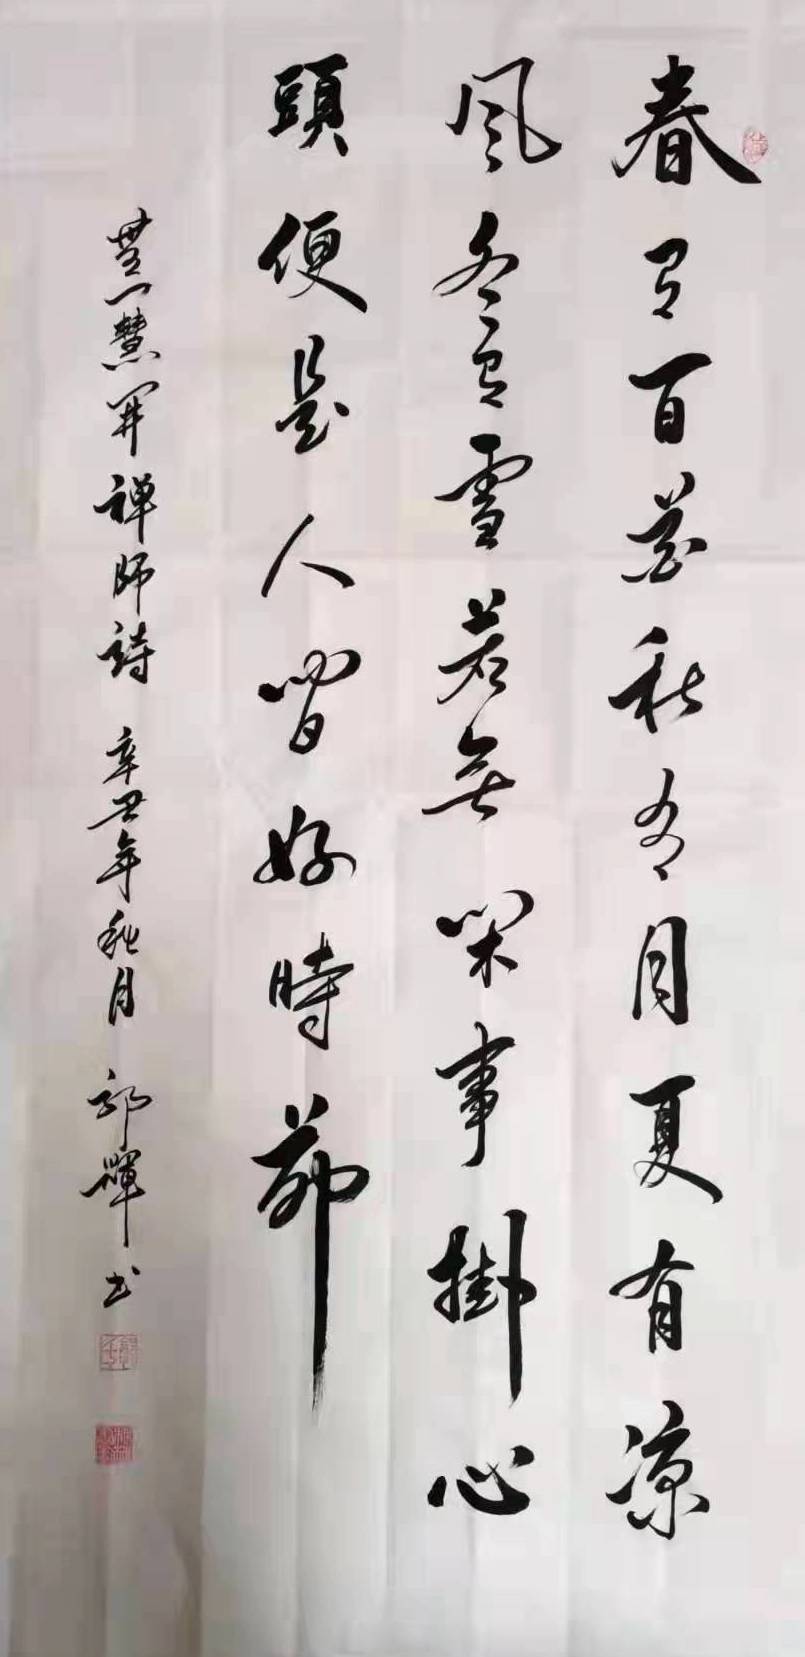 春有百花秋有月夏有凉
风冬有雪若無闲事掛心
頭便是人間好時節
無一慧開禅師詩 辛丑年秋月 郭輝书